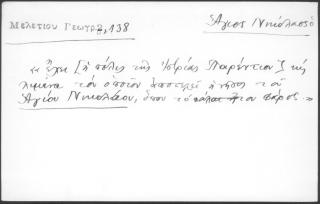 Μελετίου Γεωγρ., 138
Ἅγιος Νικόλαος
« ἔχει [ἡ πόλις τῆς Ἰστρίας Παρέντιον] καὶ
λιμένα τὸν ὁποῖον ἀποτελεῖ ἡ νῆσος τοῦ
Ἁγίου Νικολάου, ὅπου τὸ πάλαι ἦτον φάρος. »